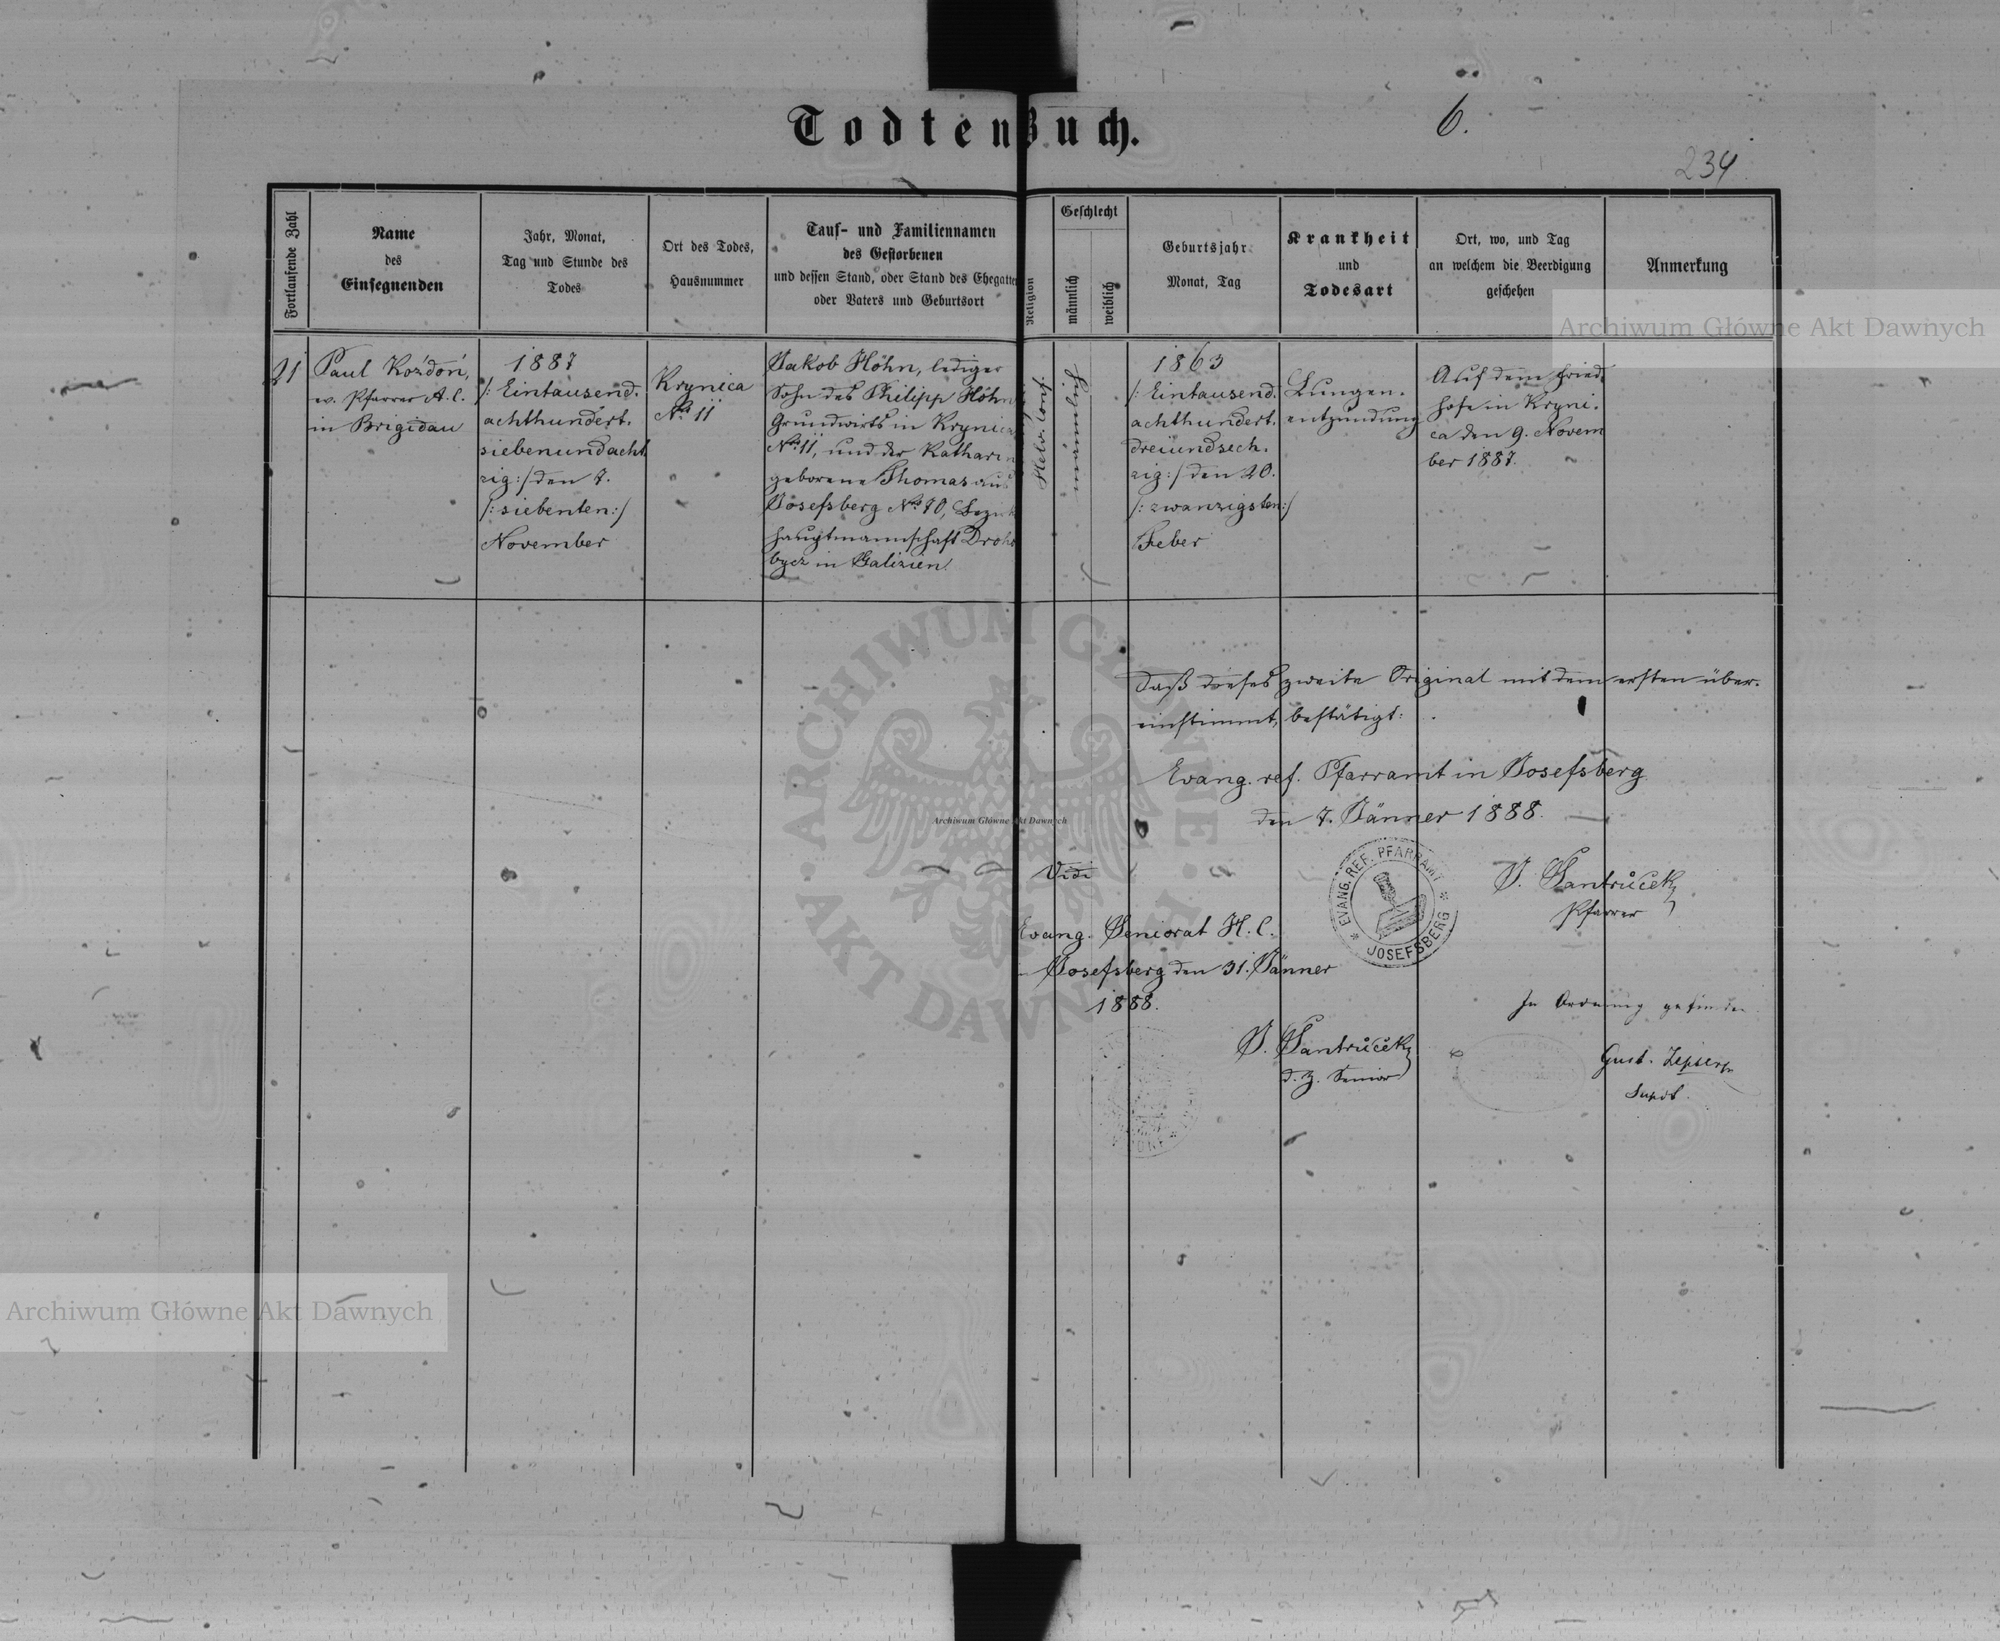 Todtenbuch.
6.
234
Fortlaufende Zahl
Name
des
Einsegnenden
Jahr, Monat,
Tag und Stunde des
Todes
Ort des Todes,
Hausnummer
Tauf- und Familiennamen
des Gestorbenen
und dessen Stand, oder Stand des Ehegatten
oder Vaters und Geburtsort
Religion
Geschlecht
männlich
weiblich
Geburtsjahr
Monat, Tag
Krankheit
und
Todesart
Ort, wo, und Tag
an welchem die Beerdigung
geschehen
Anmerkung
21
Paul Kozdoń,
ev. Pfarrer A. C.
in Brigidau
1887
/: Eintausend.
achthundert.
siebenundacht
zig :/ den 7.
/: siebenten :/
November
Krynica
No 11
Jakob Höhn, lediger
Sohn des Philipp Höhn
Grundwirts in Krynica
No 11, und der Katharin
geborene Thomas aus
Josefsberg No 70, Bezirk
hauptmannschaft Droho
bycz in Galizien
Helv. Conf.
männlich
1863
/: Eintausend.
achthundert.
dreiundsech.
zig :/ den 20.
/: zwanzigsten :/
Feber
Lungen.
entzündung
Auf dem Fried.
hofe in Kryni.
ca den 9. Novem
ber 1887.
Daß dieses zweite Original mit dem ersten über.
einstimmt, bestätigt:
Evang. ref. Pfarramt in Josefsberg
den 7. Jänner 1888.
EVANG. REF. PFARRAMT
JOSEFSBERG
J. Pantrůček
Pfarrer
Vidi
Evang. Seniorat H. C.
Josefsberg den 31. Jänner
1888.
J. Pantrůček
d. z. Senior
In Ordnung gefunden
Gust.
Supdt.
Archiwum Główne Akt Dawnych
ARCHIWUM GŁÓWNE
AKT DAWNYCH
Archiwum Główne Akt Dawnych
Archiwum Główne Akt Dawnych